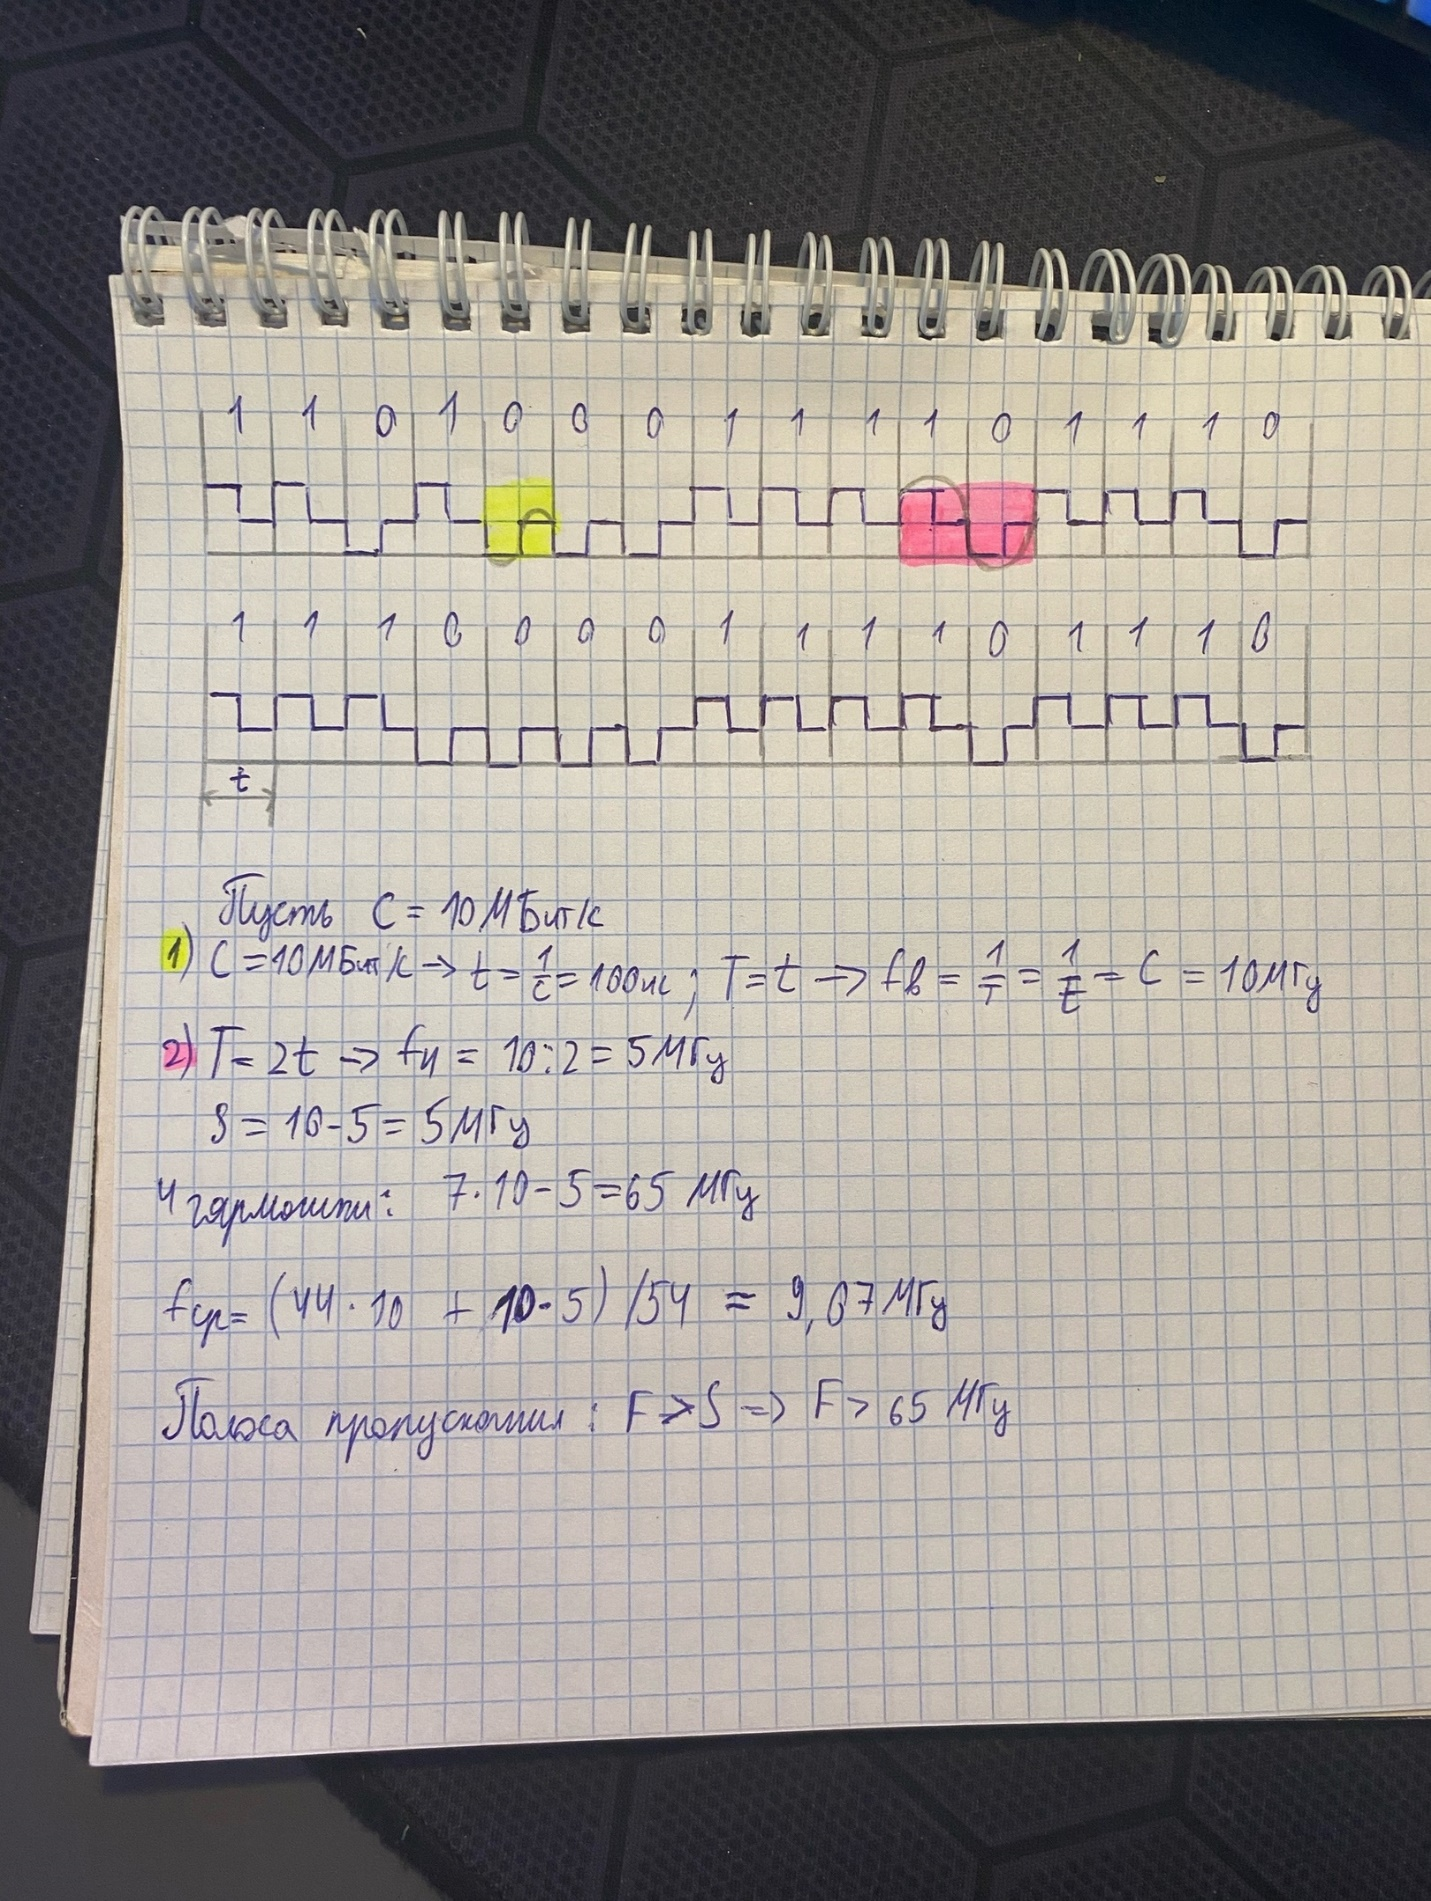 1 1 0 1 0 0 0 1 1 1 1 0 1 1 1 0
1 1 1 0 0 0 0 1 1 1 1 0 1 1 1 0
t
Пусть C = 10 МБит/с
1) C = 10 МБит/с → t = 1/C = 100 нс ; T = t → fв = 1/T = 1/t = C = 10 МГц
2) T = 2t → fн = 10:2 = 5 МГц
S = 10 - 5 = 5 МГц
4 гармошки: 7·10 - 5 = 65 МГц
fср = (44·10 + 10·5) / 54 = 9,07 МГц
Полоса пропускания : F > S => F > 65 МГц